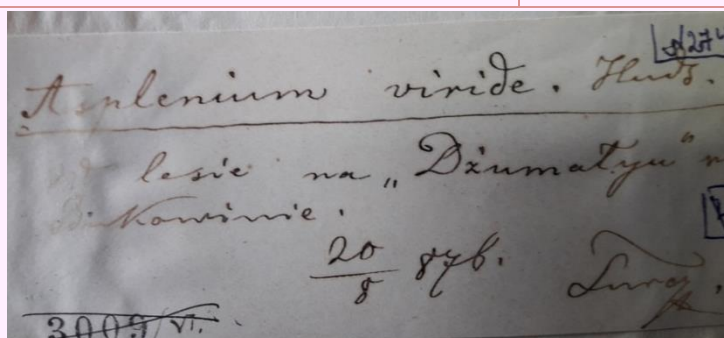 274
Asplenium viride. Huds.
lesie na „Dżumałyu"
Bukowinie.
20/8 876.
3009/VI.